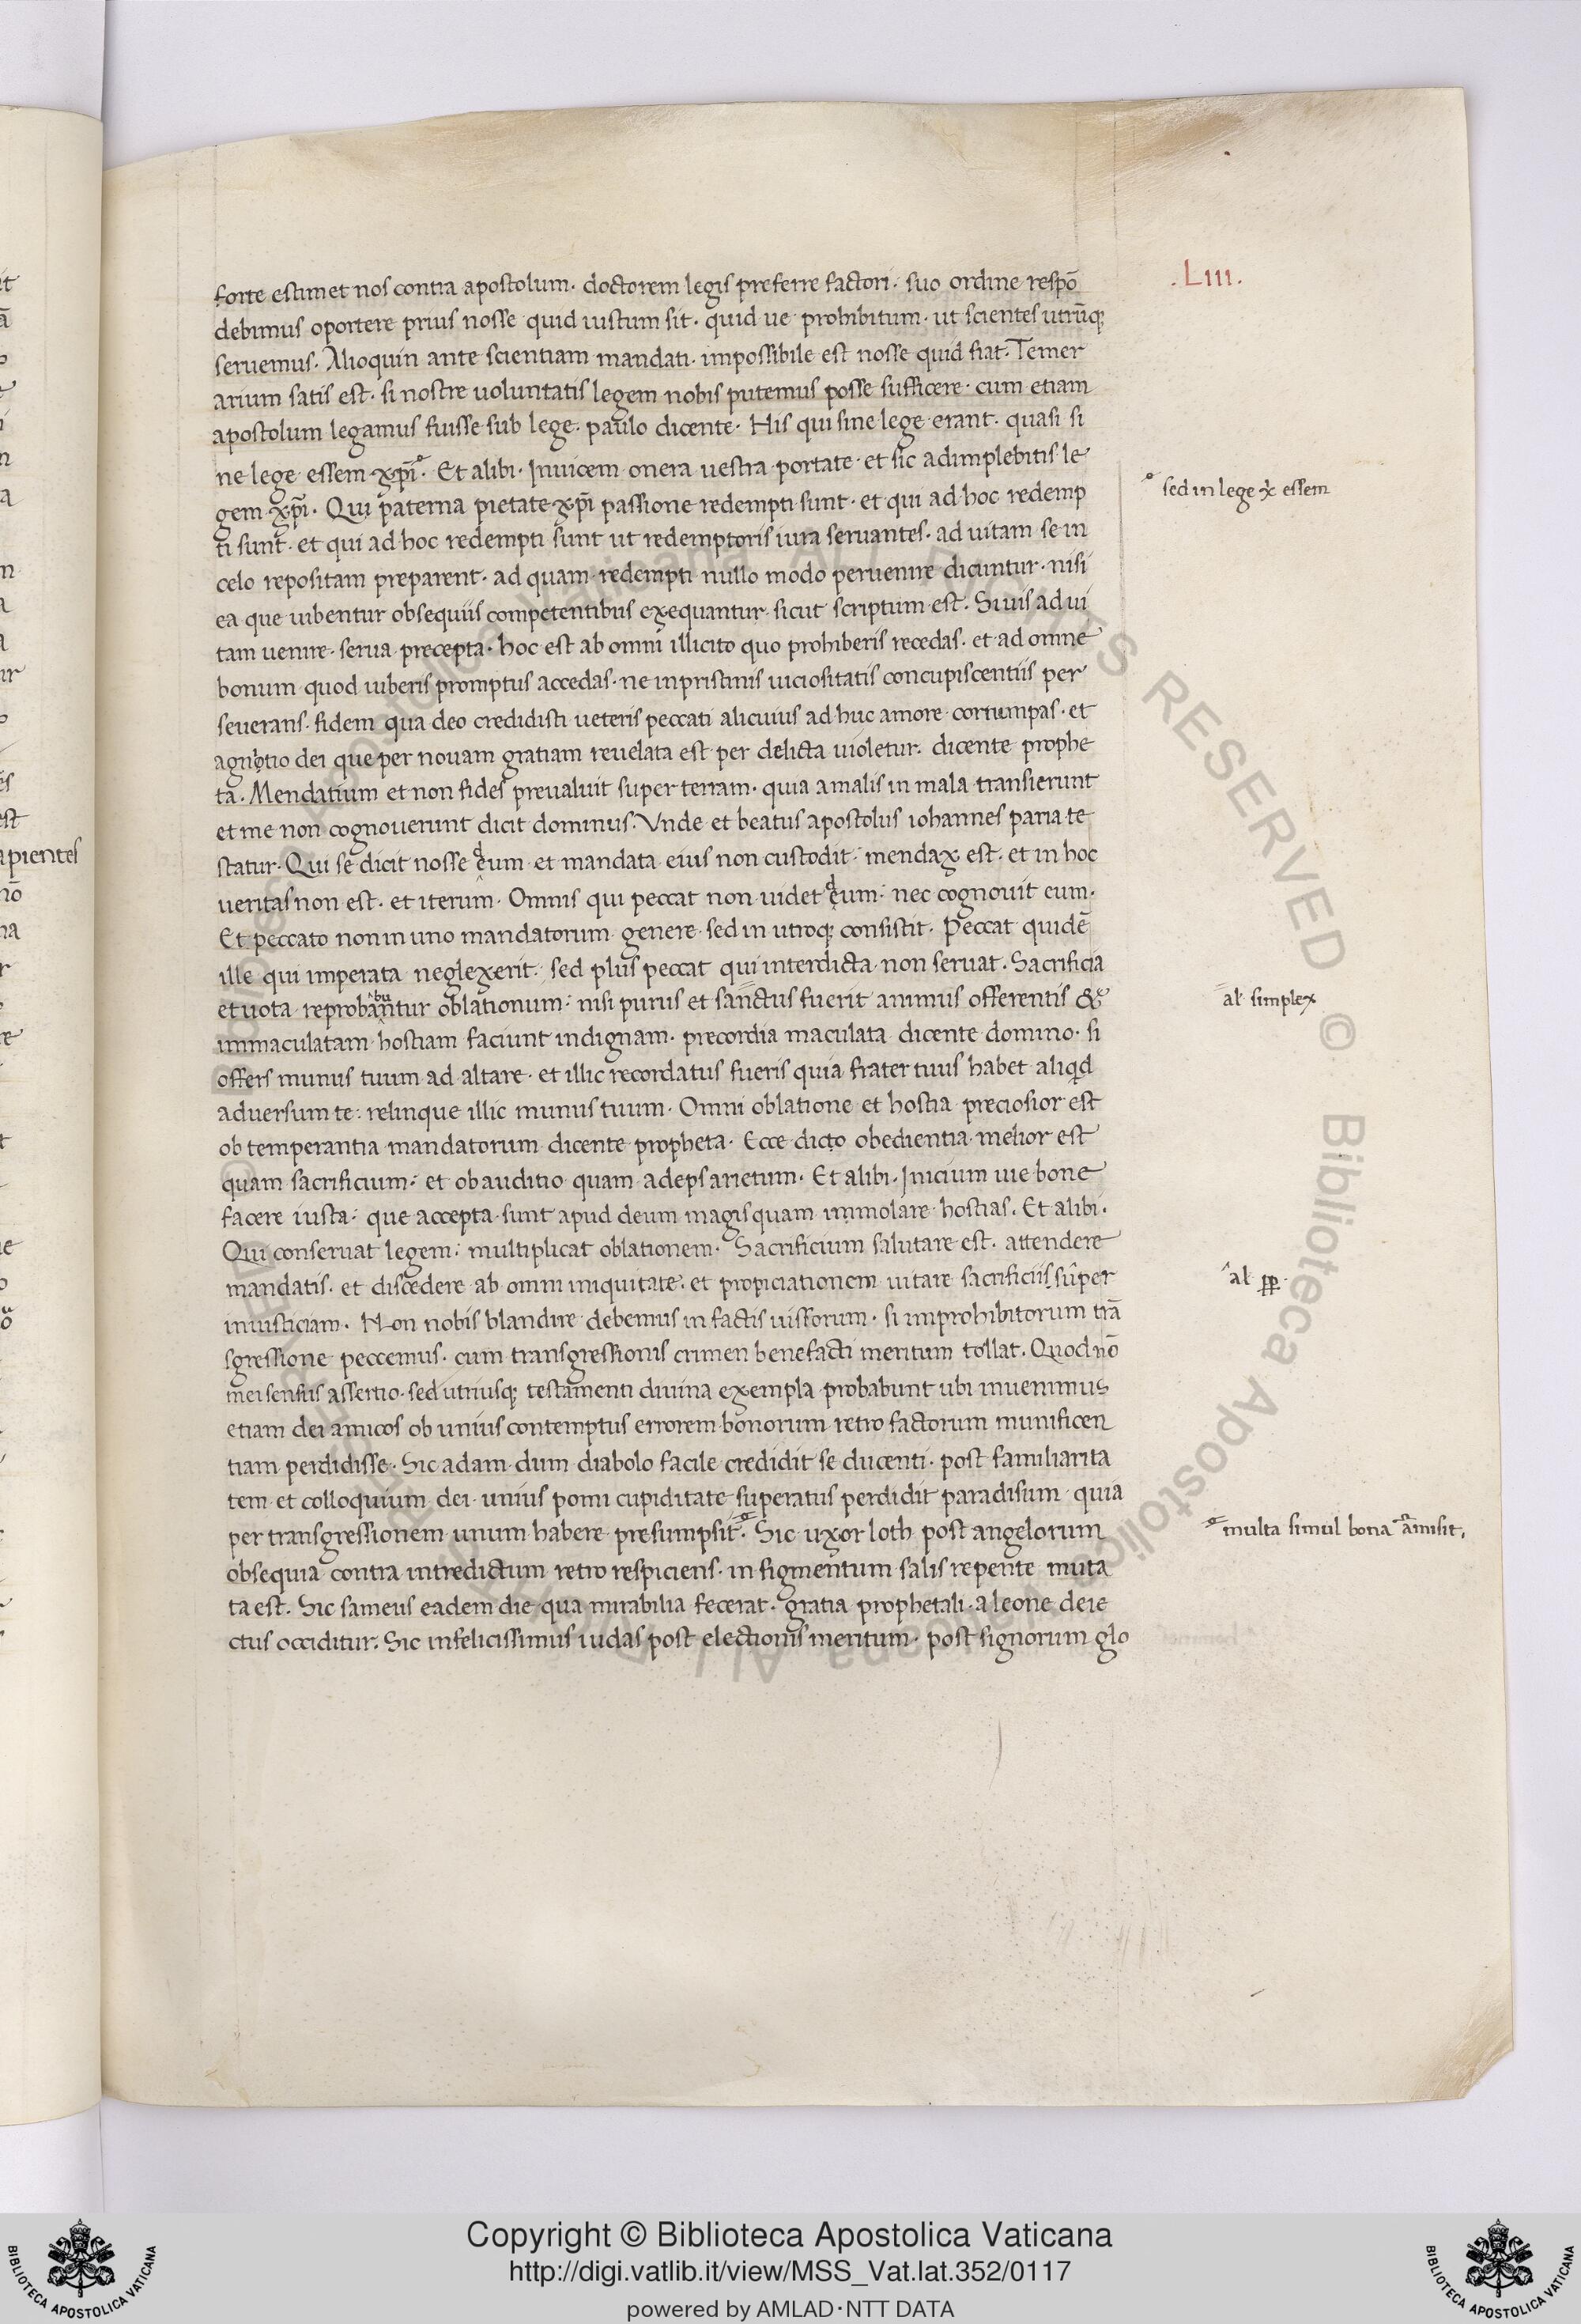 .LIII.
forte estimet nos contra apostolum· doctorem legis preferre factori· suo ordine respō
debimus oportere prius nosse quid iustum sit· quid ue prohibitum· ut scientes utrūq;
seruemus· Alioquin ante scientiam mandati· impossibile est nosse quid fiat· Temer
arium satis est· si nostre uoluntatis legem nobis putemus posse sufficere· cum etiam
apostolum legamus fuisse sub lege· paulo dicente· His qui sine lege erant· quasi si
ne lege essem xp̄i· Et alibi· Inuicem onera uestra portate· et sic adimplebitis le
sed in lege x̄ essem
gem xp̄i· Qui paterna pietate xp̄i passione redempti sunt· et qui ad hoc redemp
ti sunt· et qui ad hoc redempti sunt ut redemptoris iura seruantes· ad uitam se in
celo repositam preparent· ad quam redempti nullo modo peruenire dicuntur· nisi
ea que iubentur obsequiis competentibus exequantur· sicut scriptum est· Si uis ad ui
tam uenire· serua precepta· hoc est ab omni illicito quo prohiberis recedas· et ad omne
bonum quod iuberis promptus accedas· ne in pristinis uiciositatis concupiscentiis per
seuerans· fidem qua deo credidisti ueteris peccati alicuius ad huc amore corrumpas· et
agnitio dei que per nouam gratiam reuelata est per delicta uioletur· dicente prophe
ta· Mendatium et non fides preualuit super terram· quia a malis in mala transierunt
et me non cognouerunt dicit dominus· Vnde et beatus apostolus iohannes paria te
statur· Qui se dicit nosse deum et mandata eius non custodit· mendax est· et in hoc
ueritas non est· et iterum· Omnis qui peccat non uidet deum· nec cognouit eum·
Et peccato non in uno mandatorum genere sed in utroq; consistit· Peccat quidē
ille qui imperata neglexerit· sed plus peccat qui interdicta non seruat· Sacrificia
et uota reprobabuntur oblationum· nisi purus et sanctus fuerit animus offerentis &
al simplex
immaculatam hostiam faciunt indignam· precordia maculata dicente domino· si
offers munus tuum ad altare· et illic recordatus fueris quia frater tuus habet aliqd
aduersum te· relinque illic munus tuum· Omni oblatione et hostia preciosior est
ob temperantia mandatorum dicente propheta· Ecce dicto obedientia melior est
quam sacrificium· et obauditio quam adeps arietum· Et alibi· Inicium uie bone
facere iusta· que accepta sunt apud deum magis quam immolare hostias· Et alibi·
Qui conseruat legem· multiplicat oblationem· Sacrificium salutare est· attendere
mandatis· et discedere ab omni iniquitate· et propiciationem uitare sacrificiis super
al pp
iniusticiam· Non nobis blandire debemus in factis iussorum· si improhibitorum trā
sgressione peccemus· cum transgressionis crimen benefacti meritum tollat· Quod nō
mei sensus assertio· sed utriusq; testamenti diuina exempla probabunt ubi inuenimus
etiam dei amicos ob unius contemptus errorem bonorum retro factorum munificen
tiam perdidisse· Sic adam dum diabolo facile credidit se ducenti· post familiarita
tem et colloquium dei· unius pomi cupiditate superatus perdidit paradisum quia
per transgressionem unum habere presumpsit· Sic uxor loth post angelorum
multa simul bona amisit,
obsequia contra intredictum retro respiciens· in figmentum salis repente muta
ta est· Sic sameus eadem die qua mirabilia fecerat· gratia prophetali· a leone deie
ctus occiditur· Sic infelicissimus iudas post electionis meritum· post signorum glo
Copyright © Biblioteca Apostolica Vaticana
http://digi.vatlib.it/view/MSS_Vat.lat.352/0117
powered by AMLAD·NTT DATA